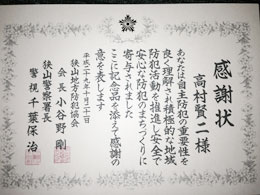 感謝状
高村賢二様
あなたは自主防犯の重要性を
良く理解され積極的な地域
防犯活動を推進し安全で
安心な防犯のまちづくりに
寄与されました
ここに記念品を添えて感謝の
意を表します
平成二十九年十月二十一日
狭山地方防犯協会
会長 小谷野 剛
狭山警察署長
警視 千葉保治